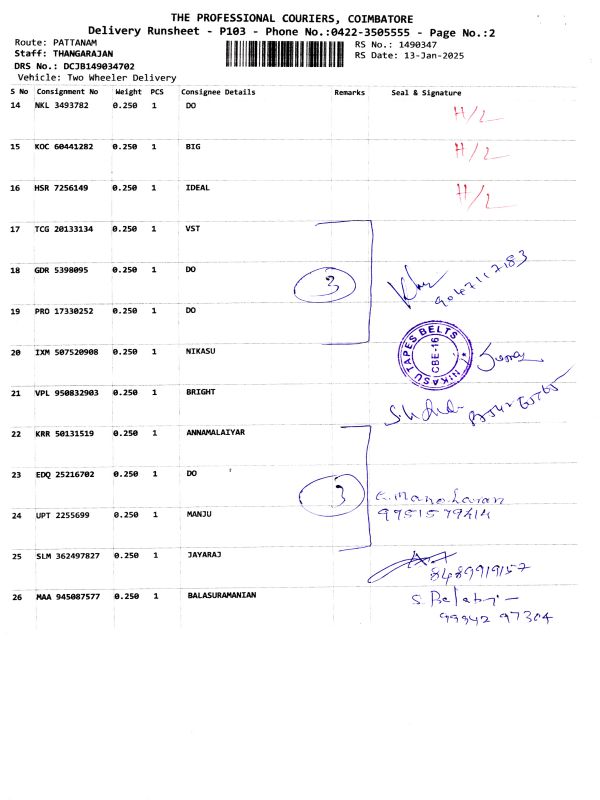 THE PROFESSIONAL COURIERS, COIMBATORE
Delivery Runsheet - P103 - Phone No.:0422-3505555 - Page No.:2
Route: PATTANAM RS No.: 1490347
Staff: THANGARAJAN RS Date: 13-Jan-2025
DRS No.: DCJB149034702
Vehicle: Two Wheeler Delivery
S No Consignment No Weight PCS Consignee Details Remarks Seal & Signature
14 NKL 3493782 0.250 1 DO H/L
15 KOC 60441282 0.250 1 BIG H/L
16 HSR 7256149 0.250 1 IDEAL H/L
17 TCG 20133134 0.250 1 VST
18 GDR 5398095 0.250 1 DO 3 9047117183
19 PRO 17330252 0.250 1 DO
20 IXM 507520908 0.250 1 NIKASU NIKASU TAPES BELTS CBE-16
21 VPL 950832903 0.250 1 BRIGHT
22 KRR 50131519 0.250 1 ANNAMALAIYAR
23 EDQ 25216702 0.250 1 DO 3 Manoharan
24 UPT 2255699 0.250 1 MANJU 9951579414
25 SLM 362497827 0.250 1 JAYARAJ 8489919157
26 MAA 945087577 0.250 1 BALASURAMANIAN S. Balaji
99942 97304